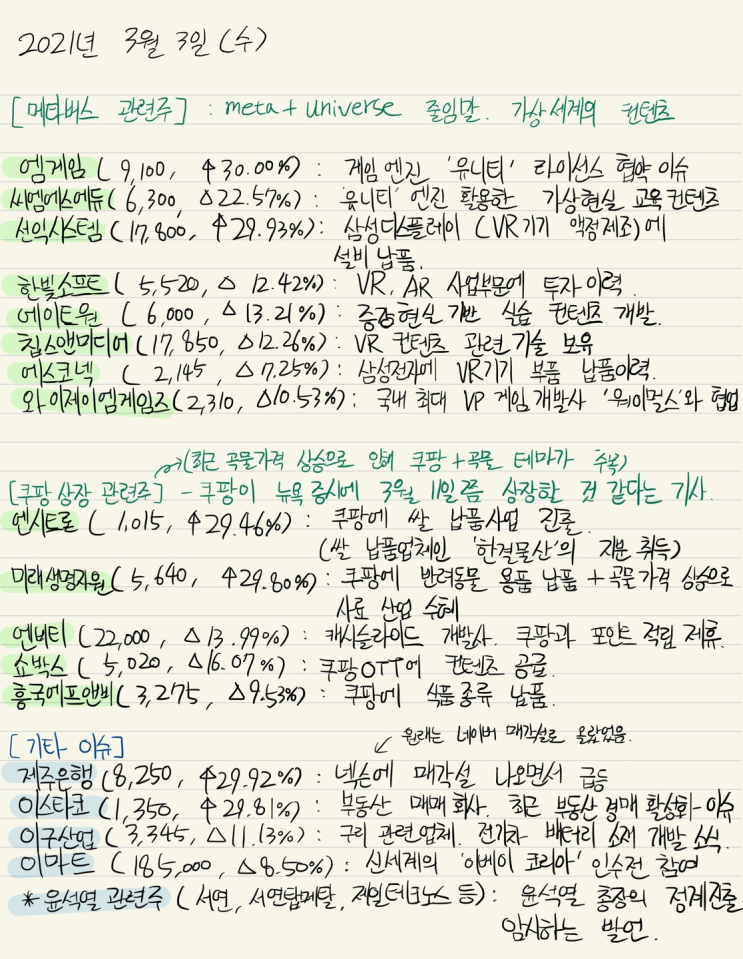 2021년 3월 3일 (수)
[메타버스 관련주] : meta + universe 줄임말. 가상세계의 컨텐츠
엠게임 ( 9,100, ↑30.00%) : 게임엔진 '유니티' 라이선스 협약 이슈
씨엠에스에듀( 6,300, △22.57%) : '유니티' 엔진 활용한 가상현실 교육컨텐츠
선익시스템 (17,800, ↑29.93%) : 삼성디스플레이 (VR기기 액정제조)에
설비 납품.
한빛소프트 ( 5,520, △ 12.42%) : VR, AR 사업부문에 투자 이력.
에이트원 ( 6,000, △13.21%) : 증강현실 기반 실습 컨텐츠 개발.
칩스앤미디어 (17,850, △12.26%) : VR 컨텐츠 관련 기술 보유
에스코넥 ( 2,145, △ 7.25%) : 삼성전자에 VR기기 부품 납품이력.
와이제이엠게임즈(2,310, △10.53%) : 국내 최대 VP 게임개발사 '원이멀스'와 협업
→(최근 곡물가격 상승으로 인해 쿠팡+곡물 테마가 주목)
[쿠팡 상장 관련주] - 쿠팡이 뉴욕 증시에 3월 11일쯤 상장할 것 같다는 기사.
엔시트론 ( 1,015, ↑29.46%) : 쿠팡에 쌀 납품사업 진출.
(쌀 납품업체인 '한결물산'의 지분 취득)
미래생명자원( 5,640, ↑29.80%) : 쿠팡에 반려동물 용품 납품 + 곡물가격 상승으로
사료 산업 수혜
엔비티 (22,000, △13.99%) : 캐시슬라이드 개발사. 쿠팡과 포인트 적립 제휴.
쇼박스 ( 5,020, △16.07%) : 쿠팡OTT에 컨텐츠 공급.
흥국에프엔비( 3,275, △9.53%) : 쿠팡에 식품종류 납품.
↙ 원래는 네이버 매각설로 올랐었음.
[기타 이슈]
제주은행 (8,250, ↑29.92%) : 넥슨에 매각설 나오면서 급등
이스타코 (1,350, ↑29.81%) : 부동산 매매 회사. 최근 부동산 경매 활성화-이슈
이구산업 ( 3,345, △11.13%) : 구리 관련업체. 전기차 배터리 소재 개발 소식.
이마트 ( 185,000, △8.50%) : 신세계의 '이베이 코리아' 인수전 참여
* 윤석열 관련주 ( 서연, 서연탑메탈, 제일테크노스 등) : 윤석열 총장의 정계진출
암시하는 발언.